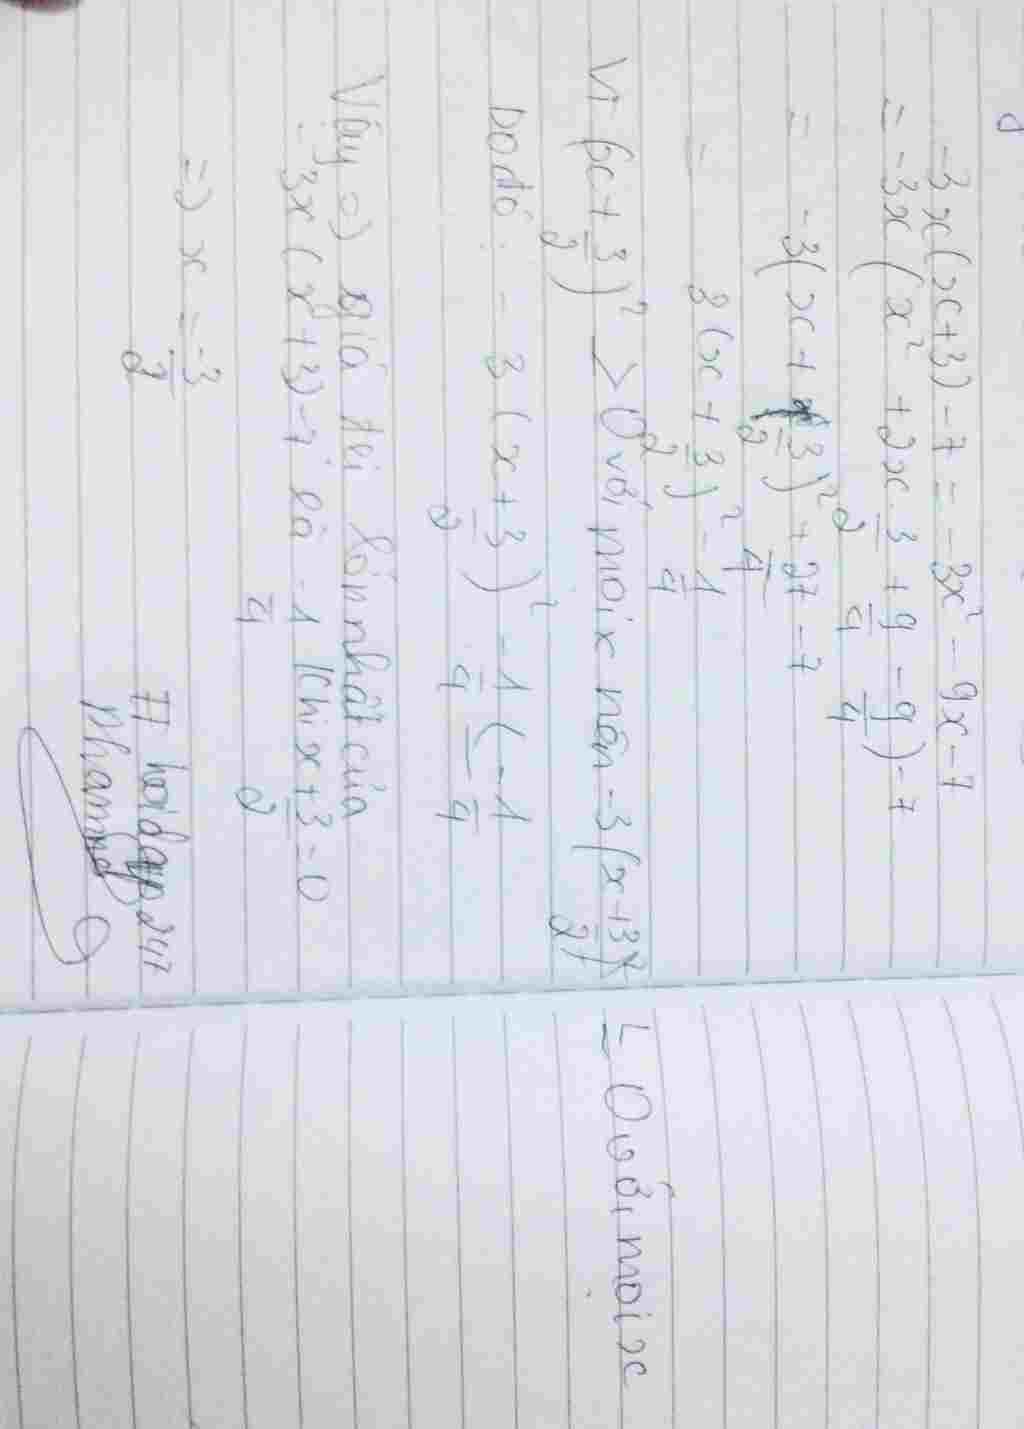 -3x(x+3) - 7 = -3x² - 9x - 7
= -3x(x² + 2x . 3/2 + 9/4 - 9/4) - 7
= -3(x + 3/2)² + 27/4 - 7
= 3(x + 3/2)² - 1/4
Vì (x + 3/2)² ≥ 0 với mọi x nên -3(x + 3/2)² ≤ 0 với mọi x
Do đó: - 3(x + 3/2)² - 1/4 ≤ - 1/4
Vậy giá trị lớn nhất của
3x(x + 3) - 7 là - 1/4 khi x + 3/2 = 0
=> x = -3/2
# hoidap247